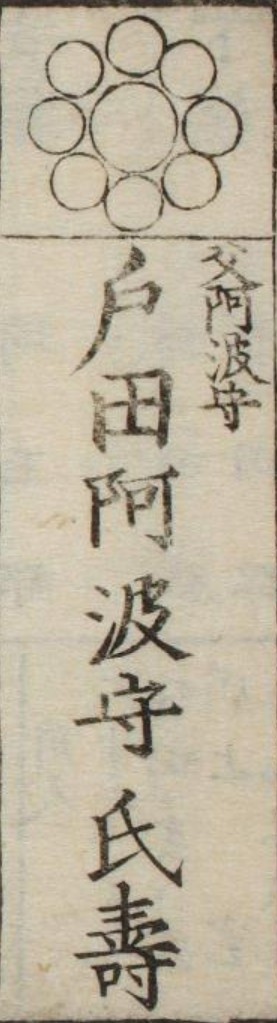 父阿波守
戸田阿波守氏壽